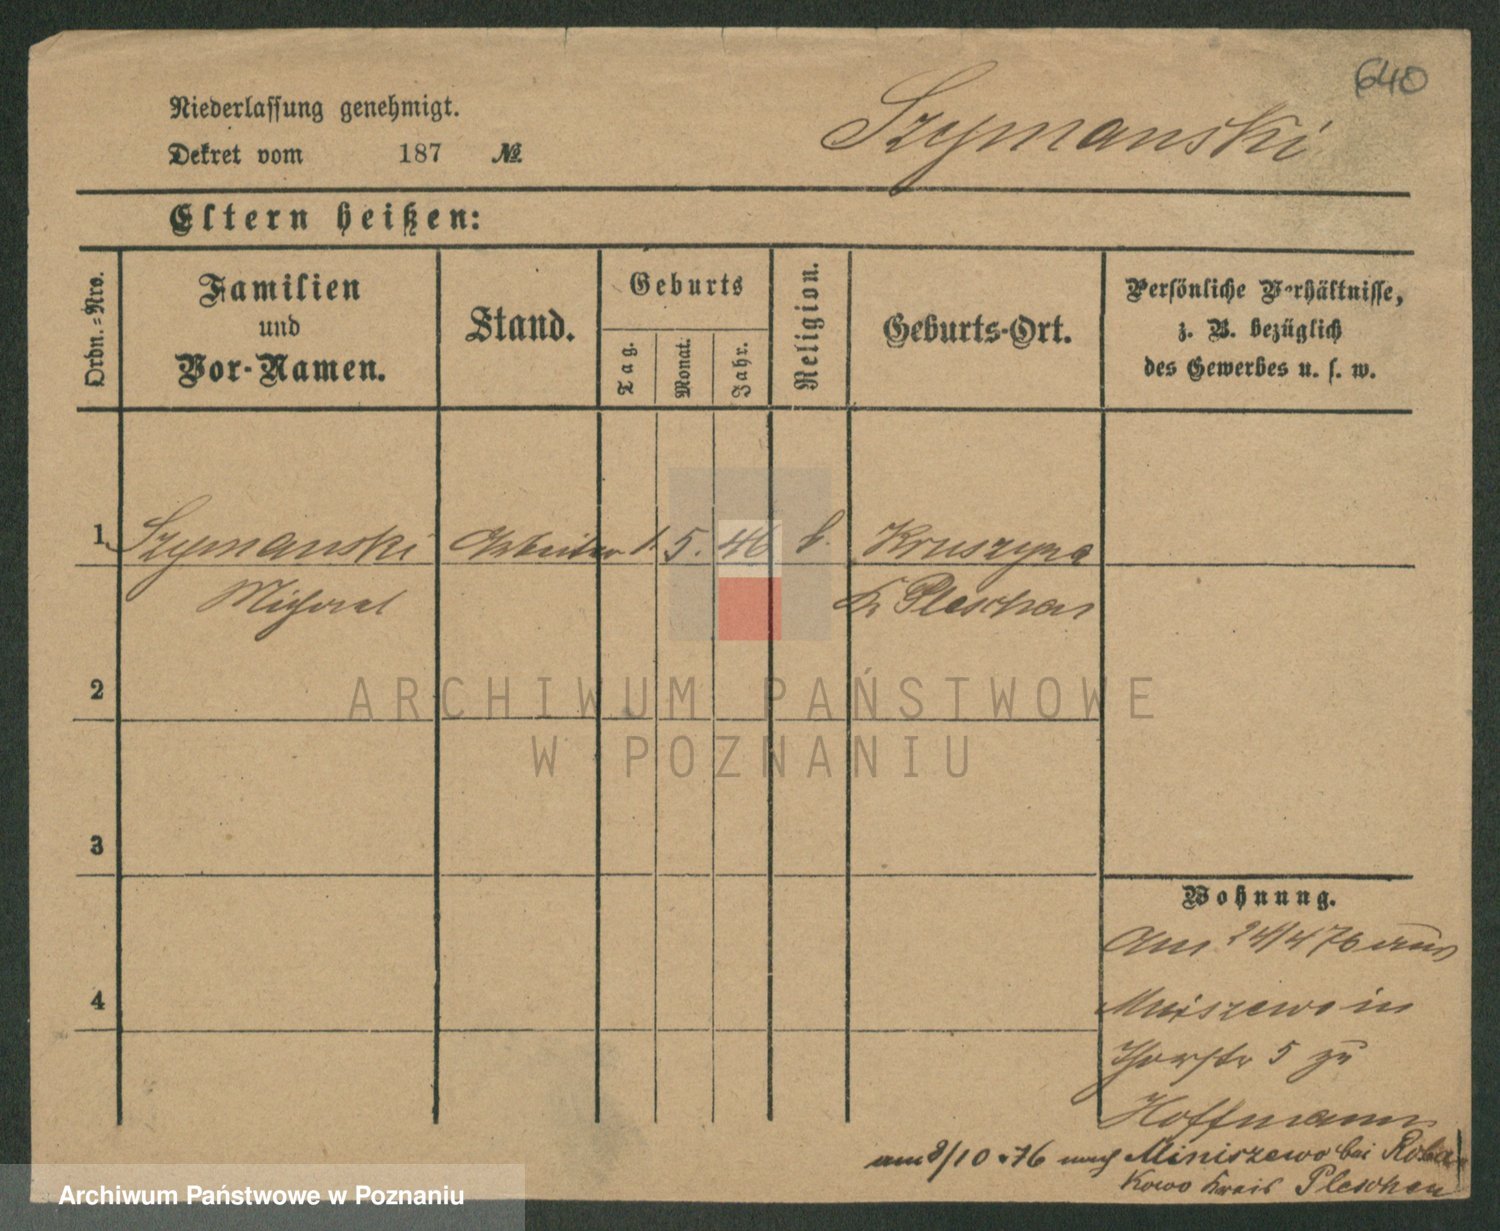 640
Niederlassung genehmigt.
Szymanski
Dekret vom 187 №
Eltern heißen:
Ordn.-Nro.
Familien
und
Vor-Namen.
Stand.
Geburts
Tag.
Monat.
Jahr.
Religion.
Geburts-Ort.
Persönliche Verhältnisse,
z. B. bezüglich
des Gewerbes u. s. w.
1 Szymanski Arbeiter 1. 5. 46 k. Kruszyna
Michael Kr Pleschen
2
ARCHIWUM PAŃSTWOWE
W POZNANIU
3
Wohnung.
Am 24/4 76 aus
4
in
5 zu
Hoffmann
am 8/10 76 nach Miniszewo bei Roba
kowo Kreis Pleschen
Archiwum Państwowe w Poznaniu